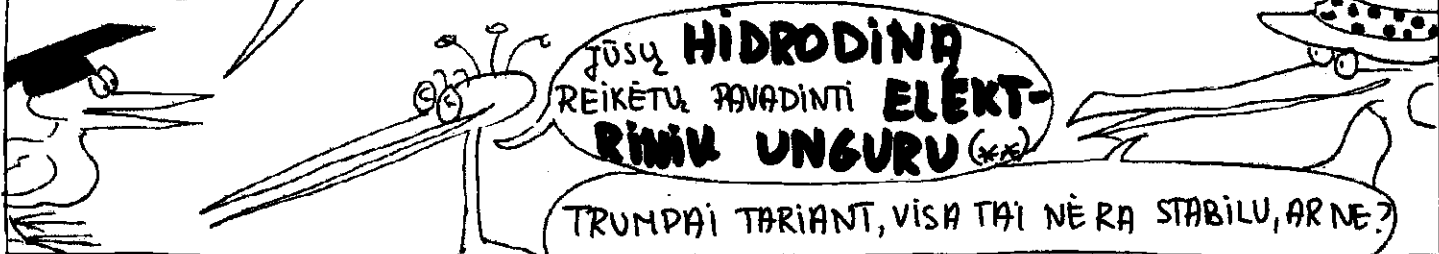 JŪSŲ HIDRODINĄ
REIKĖTŲ PAVADINTI ELEKT-
RINIU UNGURU (**)
TRUMPAI TARIANT, VISA TAI NĖRA STABILU, AR NE?